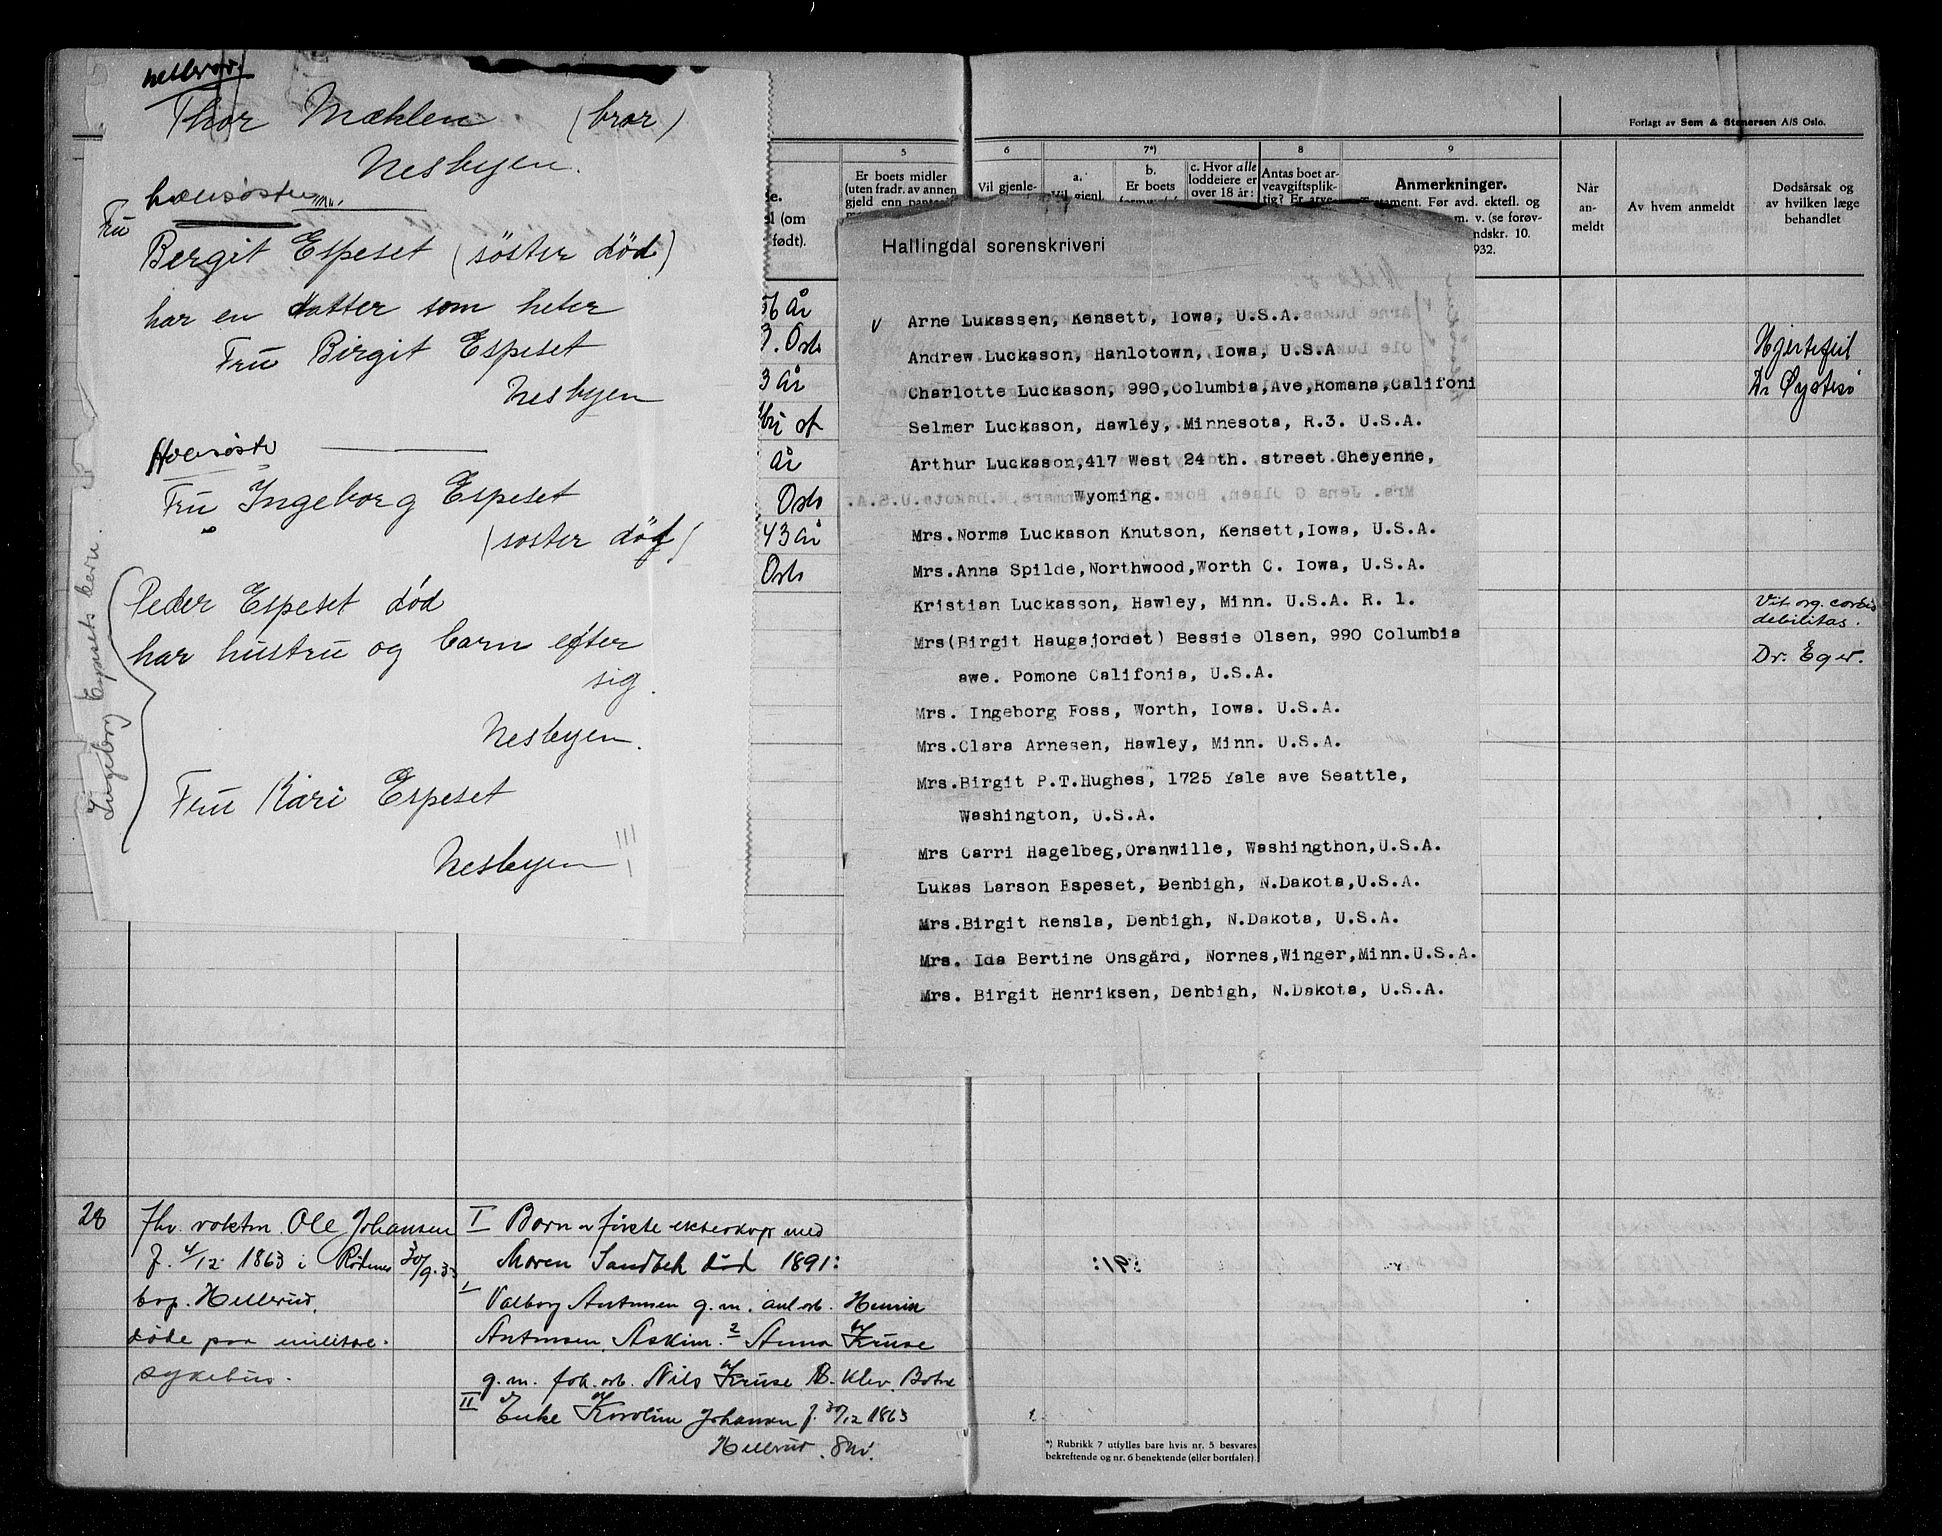 Thor Mæhlen (bror)
Nesbyen.
Fru
Bergit Espeset (søster død)
har en datter som heter
Fru Birgit Espeset
Nesbyen
Fru Ingeborg Espeset
(søster død)
Peder Espeset død
har hustru og barn efter
sig.
Nesbyen.
Fru Kari Espeset
Nesbyen
Ingeborg Espesets
Forlagt av Sem & Stenersen A/S Oslo.
5
6
7*)
8
9
Er boets midler
(uten fradr. av annen
gjeld enn
Vil gjenle-
a.
Vil gjenl.
b.
Er boets
c. Hvor alle
loddeiere er
over 18 år:
Antas boet ar-
veavgiftsplik-
tig?
Anmerkninger.
Før avd. ektefl. og
m. v. (se forøv-
10.
Når
an-
meldt
Av hvem anmeldt
Dødsårsak og
av hvilken læge
behandlet
(om
født).
år
Oslo
3 år
år
Oslo
43 år
Oslo
Hjertefeil
Dr Øystese
Vit. org. cordis
debilitas.
Dr. Eger.
Hallingdal sorenskriveri
v Arne Lukassen, Kensett, Iowa, U.S.A.
Andrew Luckason, Hanlotown, Iowa, U.S.A
Charlotte Luckason, 990,Columbia,Ave,Romana,Califoni
Selmer Luckason, Hawley, Minnesota, R.3. U.S.A.
Arthur Luckason,417 West 24 th. street Cheyenne,
Wyoming.
Mrs.Norma Luckason Knutson, Kensett,Iowa, U.S.A.
Mrs.Anna Spilde,Northwood,Worth C. Iowa, U.S.A.
Kristian Luckasson, Hawley, Minn. U.S.A. R. 1.
Mrs(Birgit Haugajordet) Bessie Olsen, 990 Columbia
awe. Pomone Califonia, U.S.A.
Mrs. Ingeborg Foss, Worth, Iowa. U.S.A.
Mrs.Clara Arnesen, Hawley, Minn. U.S.A.
Mrs.Birgit P.T.Hughes, 1725 Yale ave Seattle,
Washington, U.S.A.
Mrs Carri Hagelbeg,Oranwille, Washingthon,U.S.A.
Lukas Larson Espeset, Denbigh, N.Dakota,U.S.A.
Mrs.Birgit Rensla, Denbigh, N.Dakota, U.S.A.
Mrs. Ida Bertine Onsgård, Nornes,Winger,Minn.U.S.A.
Mrs. Birgit Henriksen, Denbigh, N.Dakota, U.S.A.
28
fhv. voktm. Ole Johansen
f. 4/12 1863 i Rødenes
30/9.33
bop. Hellerud.
døde paa militær-
sykehus.
I Barn av første ekteskap med
Maren Sandbek død 1891:
1 Valborg Antonsen g.m. anl.arb. Henrik
Antonsen, Askim. 2 Anna Kruse
g.m. Nils Kruse
II Enke Karoline Johansen f. 30/12 1863
Hellerud.
*) Rubrikk 7 utfylles bare hvis nr. 5 besvares
bekreftende og nr. 6 benektende (eller bortfaler).